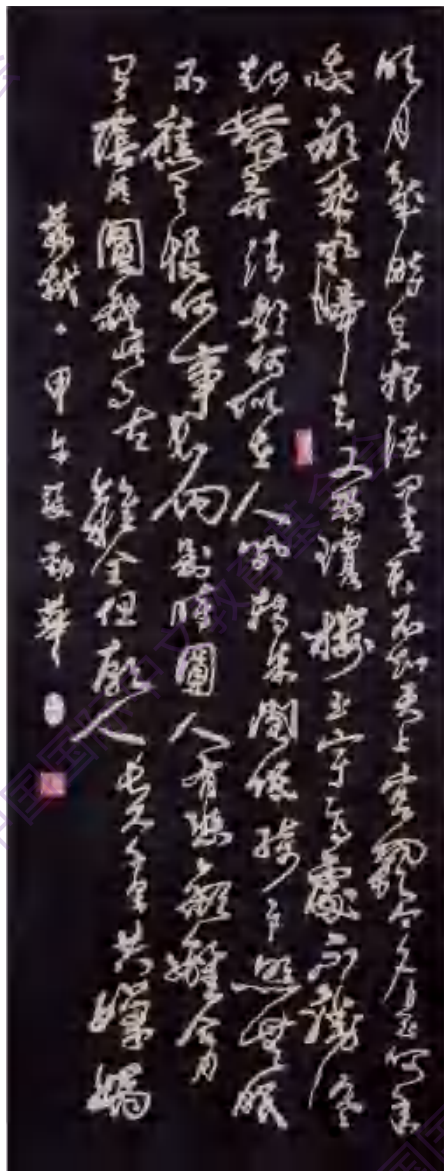 明月幾時有把酒問青天不知天上宮闕今夕是何年
我欲乘風歸去又恐瓊樓玉宇高處不勝寒
起舞弄清影何似在人間轉朱閣低綺戶照無眠
不應有恨何事長向別時圓人有悲歡離合月
有陰晴圓缺此事古難全但願人長久千里共嬋娟
蘇軾 甲午 勤華
国国际中文教育基金会